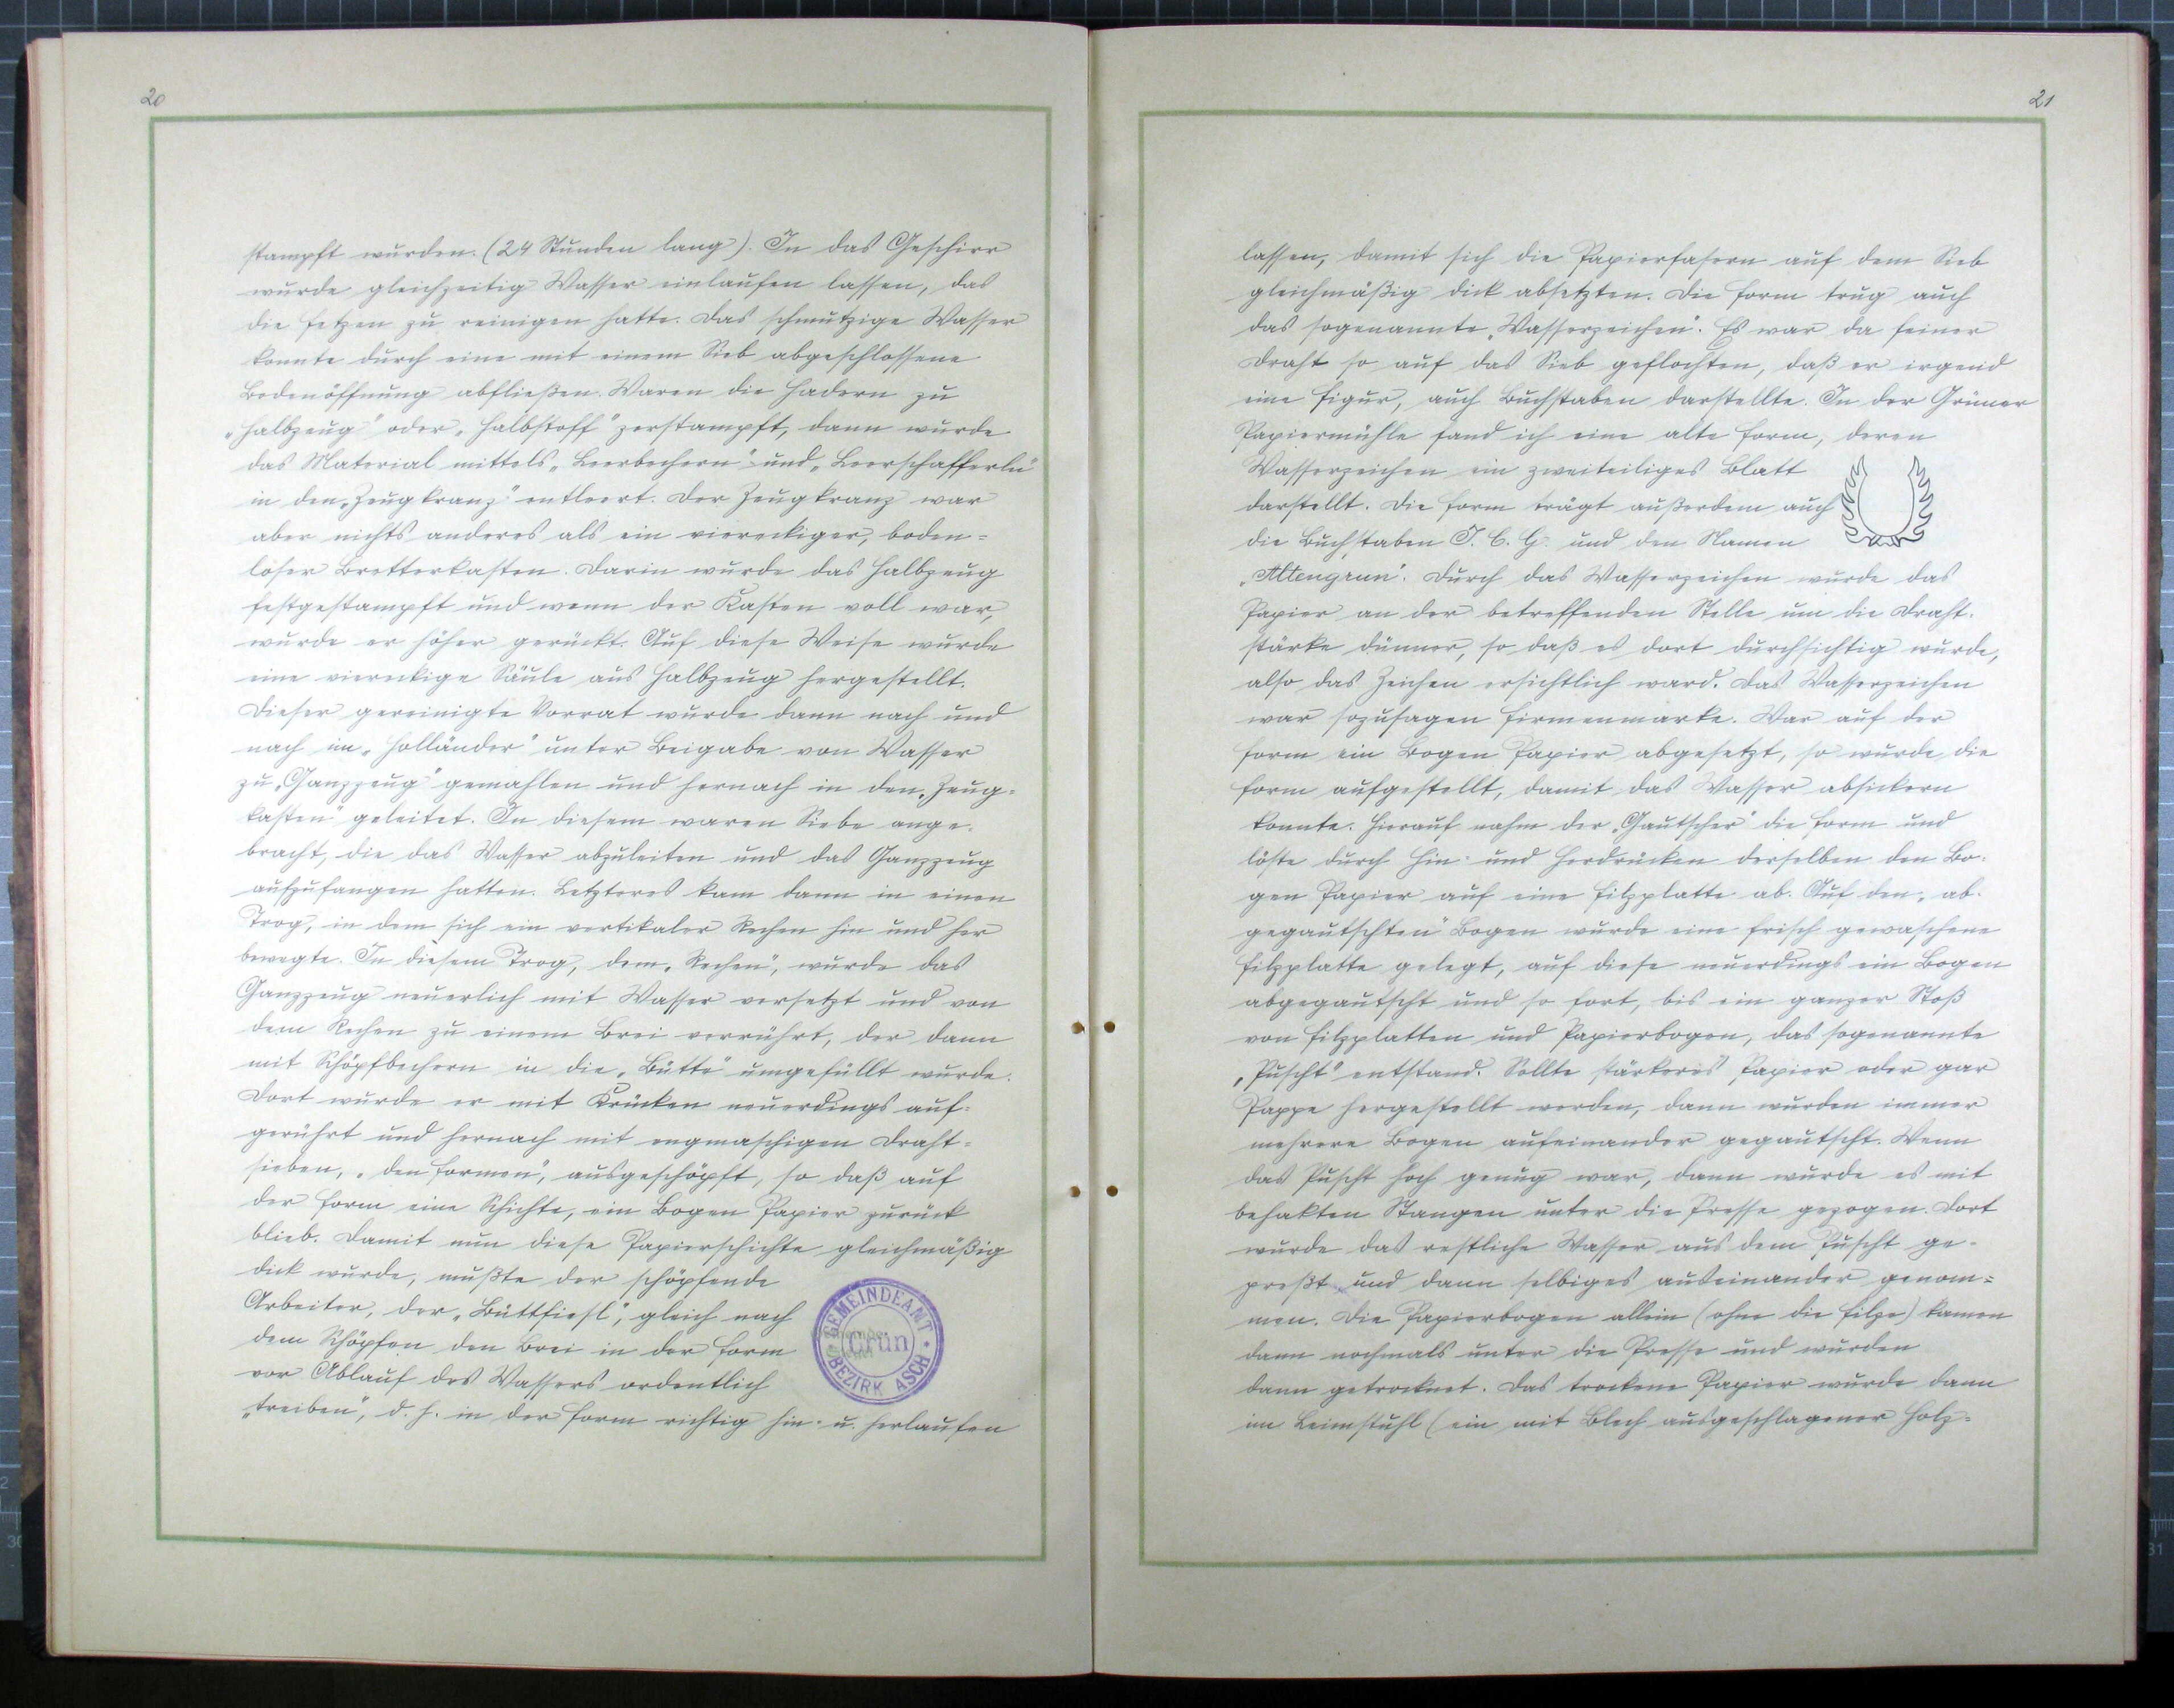 20
stampft wurden. (24 Stunden lang). In das Geschirr
wurde gleichzeitig Wasser einlaufen lassen, das
die Fetzen zu reinigen hatte. Das schmutzige Wasser
konnte durch eine mit einem Sieb abgeschlossene
Bodenöffnung abfließen. Waren die Hadern zu
„Halbzeug" oder „Halbstoff" zerstampft, dann wurde
das Material mittels „Leerbechern" und „Leerschafferln"
in den „Zeugkranz" entleert. Der Zeugkranz war
aber nichts anderes als ein viereckiger, boden=
loser Bretterkasten. Darin wurde das Halbzeug
festgestampft und wenn der Kasten voll war,
wurde er höher gerückt. Auf diese Weise wurde
eine viereckige Säule aus Halbzeug hergestellt.
Dieser gereinigte Vorrat wurde dann nach und
nach im „Holländer" unter Beigabe von Wasser
zu „Ganzzeug" gemahlen und hernach in den „Zeug=
kasten" geleitet. In diesem waren Siebe ange-
bracht, die das Wasser abzuleiten und das Ganzzeug
aufzufangen hatten. Letzteres kam dann in einen
Trog, in dem sich ein vertikaler Rechen hin und her
bewegte. In diesem Trog, dem „Rechen", wurde das
Ganzzeug neuerlich mit Wasser versetzt und von
dem Rechen zu einem Brei verrührt, der dann
mit Schöpfbechern in die „Bütte" umgefüllt wurde.
Dort wurde er mit Krücken neuerdings auf=
gerührt und hernach mit engmaschigen Draht=
sieben, „den Formen", ausgeschöpft, so daß auf
der Form eine Schichte, ein Bogen Papier zurück
blieb. Damit nun diese Papierschichte gleichmäßig
dick wurde, mußte der schöpfende
Arbeiter, der „Büttfiesl", gleich nach
dem Schöpfen den Brei in der Form
vor Ablauf des Wassers ordentlich
„treiben", d. h. in der Form richtig hin- u. herlaufen
GEMEINDEAMT
Grün
BEZIRK ASCH
21
lassen, damit sich die Papierfasern auf dem Sieb
gleichmäßig dick absetzten. Die Form trug auch
das sogenannte „Wasserzeichen". Es war da feiner
Draht so auf das Sieb geflochten, daß er irgend
eine Figur, auch Buchstaben darstellte. In der Grüner
Papiermühle fand ich eine alte Form, deren
Wasserzeichen ein zweiteiliges Blatt
darstellt. Die Form trägt außerdem auch
die Buchstaben J. C. G. und den Namen
„Altengrun". Durch das Wasserzeichen wurde das
Papier an der betreffenden Stelle um die Draht-
stärke dünner, so daß es dort durchsichtig wurde,
also das Zeichen ersichtlich ward. Das Wasserzeichen
war sozusagen Firmenmarke. War auf der
Form ein Bogen Papier abgesetzt, so wurde die
Form aufgestellt, damit das Wasser absickern
konnte. Hierauf nahm der „Gautscher" die Form und
löste durch Hin- und Herdrücken derselben den Bo-
gen Papier auf eine Filzplatte ab. Auf den „ab-
gegautschten" Bogen wurde eine frisch gewaschene
Filzplatte gelegt, auf diese neuerdings ein Bogen
abgegautscht und so fort, bis ein ganzer Stoß
von Filzplatten und Papierbogen, das sogenannte
„Puscht" entstand. Sollte stärkeres Papier oder gar
Pappe hergestellt werden, dann wurden immer
mehrere Bogen aufeinander gegautscht. Wenn
das Puscht hoch genug war, dann wurde es mit
behakten Stangen unter die Presse gezogen. Dort
wurde das restliche Wasser aus dem Puscht ge-
preßt und dann selbiges auseinander genom=
men. Die Papierbogen allein (ohne die Filze) kamen
dann nochmals unter die Presse und wurden
dann getrocknet. Das trockene Papier wurde dann
im Leimstuhl (ein mit Blech ausgeschlagener Holz=